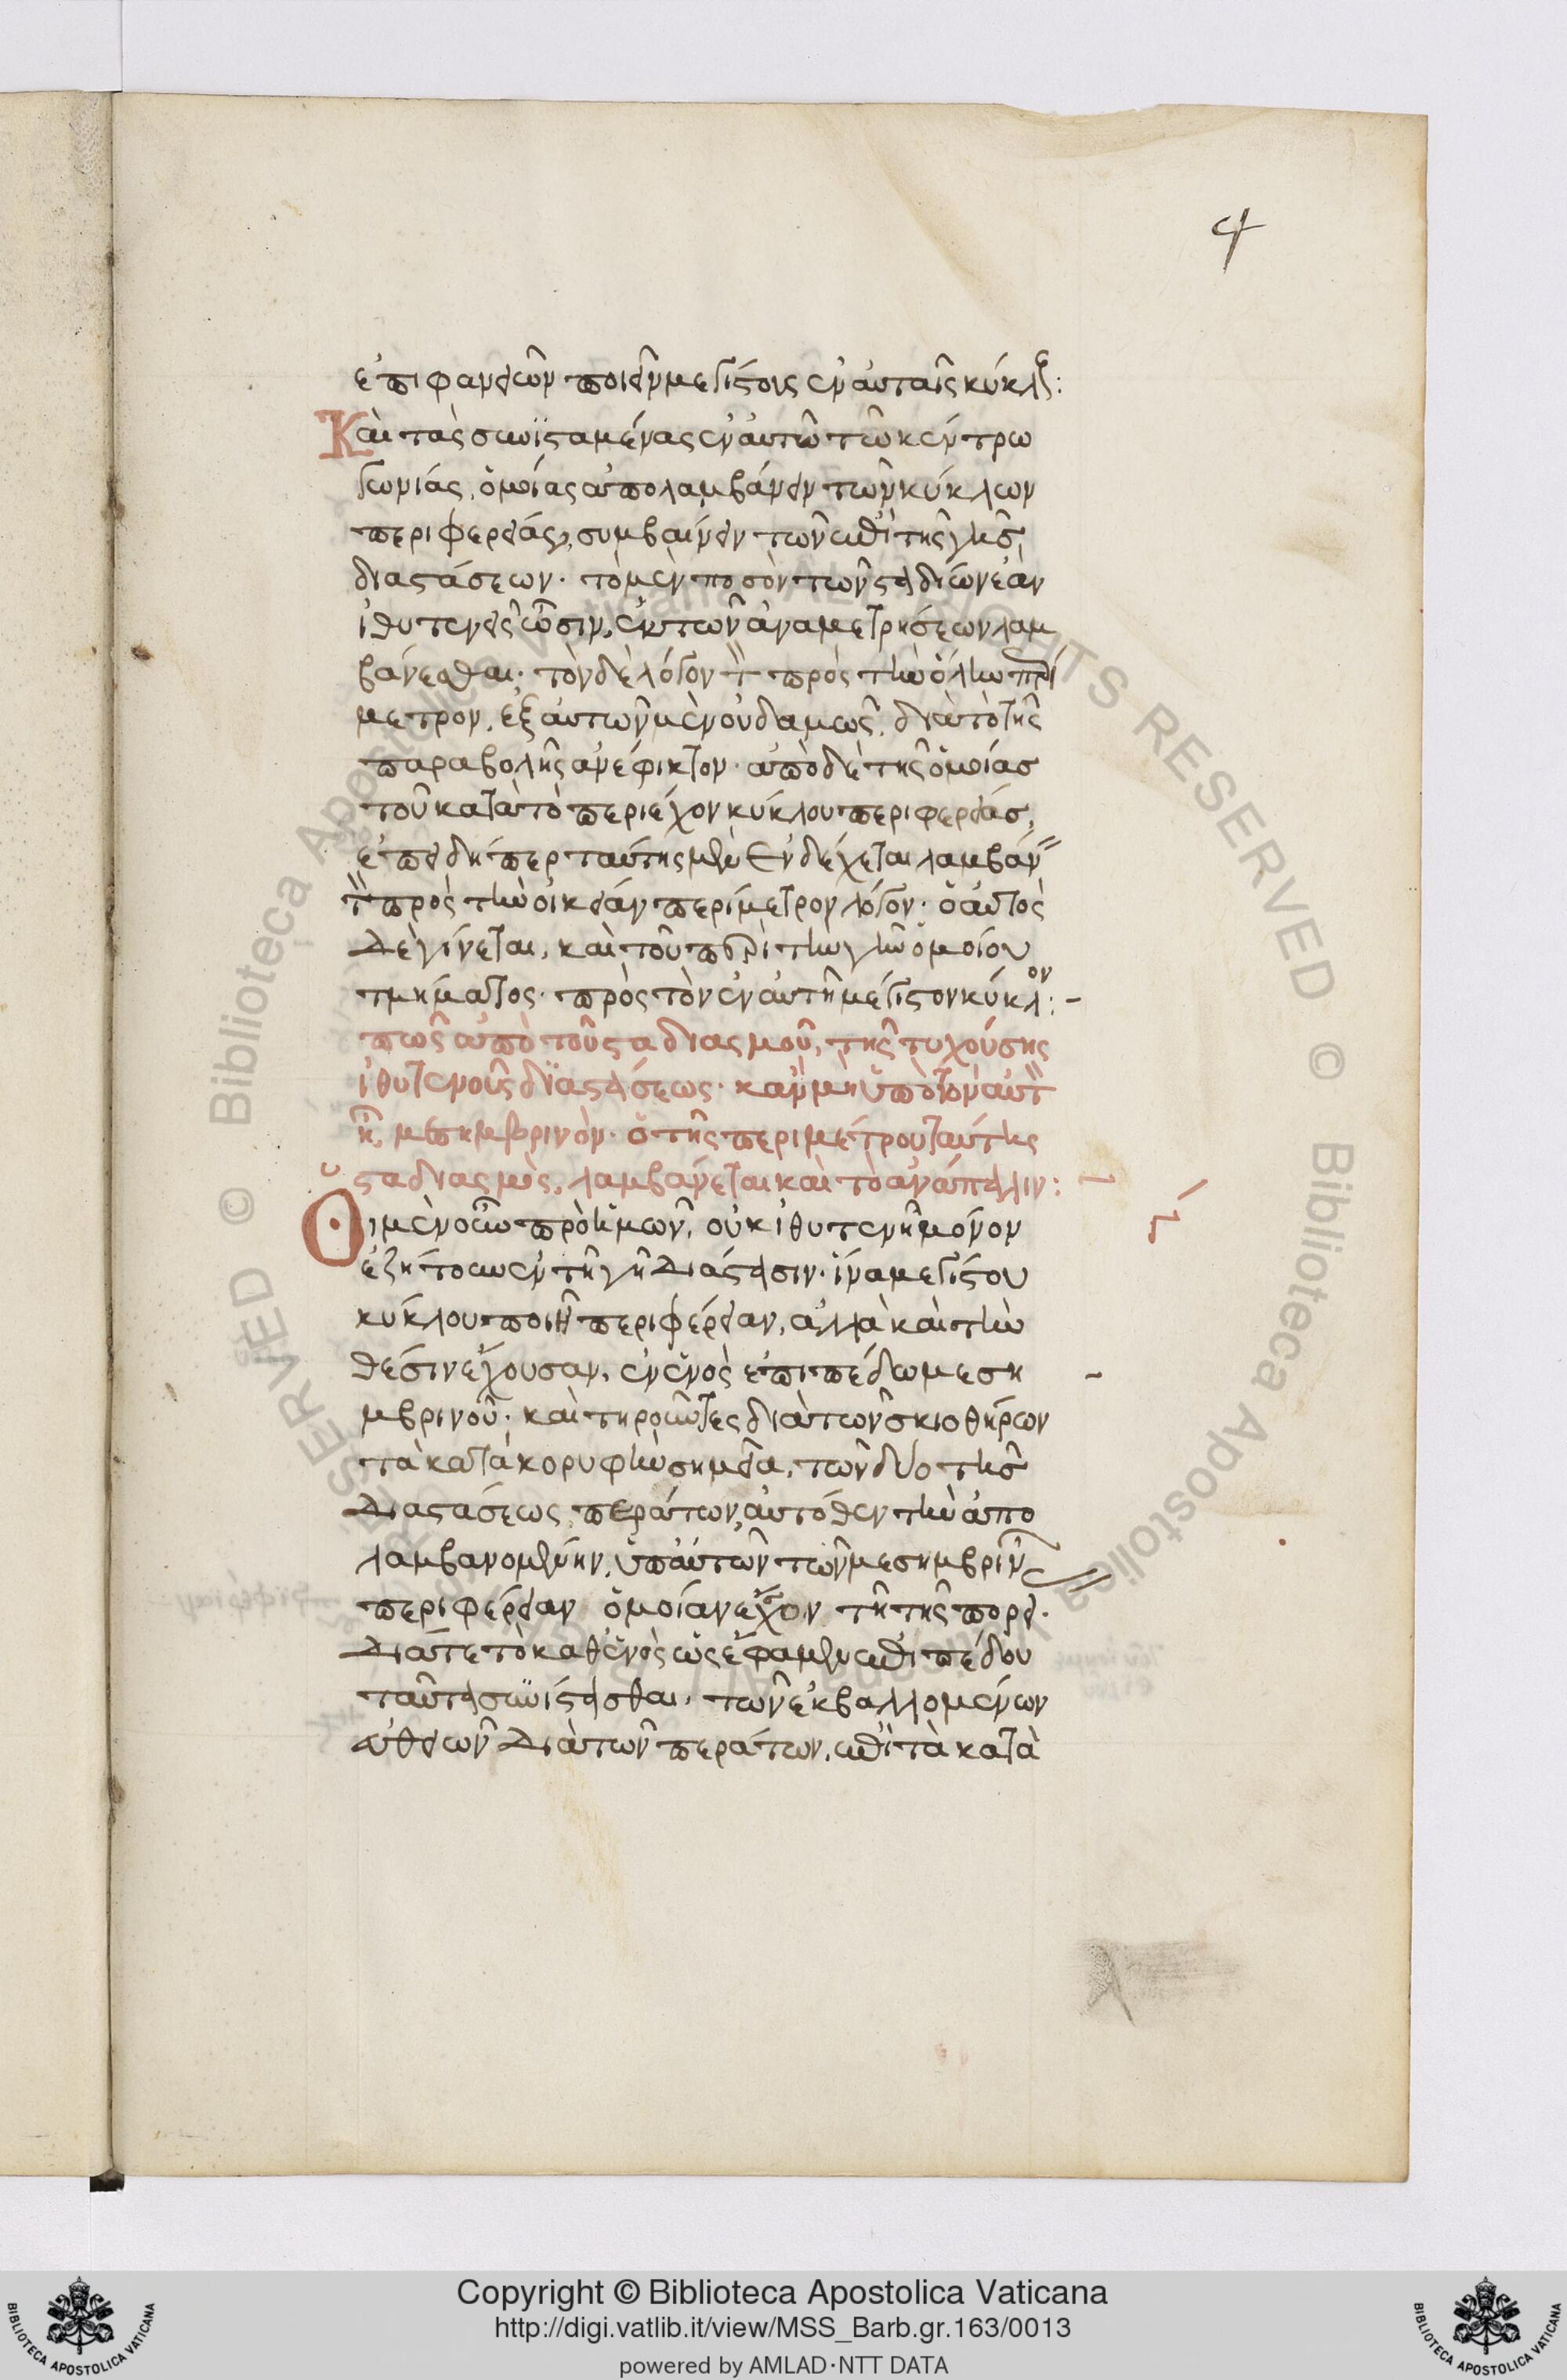 4
ἐπιφανειῶν ποιεῖν μεγίστοις ἐν αὐταῖς κύκλοις:
Καὶ τὰς συνϊσταμένας ἐν αὐτῶ τῶ κέντρω
γωνιάς, ὁμοίας ἀπολαμβάνειν τῶν κύκλων
περιφερείας, συμβαίνειν τῶν ἐπὶ τῆς γῆς
διαστάσεων· τὸ μὲν ποσὸν τῶν σταδίων ἐὰν
ἰθυτενεῖς ὦσιν, ἐκ τῶν ἀναμετρήσεων λαμ
βάνεσθαι· τὸν δὲ λόγον τὸν πρὸς τὴν ὅλην περί
μετρον, ἐξ αὐτῶν μὲν οὐδαμῶς, διὰ τὸ τῆς
παραβολῆς ἀνέφικτον· ἀπὸ δὲ τῆς ὁμοίας
τοῦ κατὰ τὸ περιέχον κύκλου περιφερείας,
ἐπειδήπερ ταύτης μὲν ἐνδέχεται λαμβάνειν
τὸν πρὸς τὴν οἰκείαν περίμετρον λόγον· ὁ αὐτὸς
δὲ γίνεται, καὶ τοῦ περὶ τὴν γῆν ὁμοίου
τμήματος· πρὸς τὸν ἐν αὐτῆ μέγιστον κύκλον:-
πῶς ἀπὸ τοῦ σταδιασμοῦ, τῆς τυχούσης
ἰθυτενοῦς δϊαστάσεως· κἂν μὴ ὑπὸ τὸν αὐτὸν
ἦ, μεσημβρινὸν· ὁ τῆς περιμέτρου ταύτης
σταδιασμὸς, λαμβάνεται καὶ τὸ ἀνάπαλιν:
Οἱ μὲν οὖν πρὸ ἡμῶν, οὐκ ἰθυτενῆ μόνον
ἐζήτουν ἐν τῆ γῆ διάστασιν· ἵνα μεγίστου
κύκλου ποιῆ περιφέρειαν, ἀλλὰ καὶ τὴν
θέσιν ἔχουσαν, ἐν ἑνὸς ἐπιπέδω μεση
μβρινοῦ· καὶ τηροῦντες διὰ τῶν σκιοθήρων
τὰ κατὰ κορυφὴν σημεῖα, τῶν δύο τῆς
διαστάσεως περάτων, αὐτόθεν τὴν ἀπο
λαμβανομένην, ὑπ' αὐτῶν τῶν μεσημβριν
περιφέρειαν ὁμοίαν εἶχον τῆ τῆς πορεί.
διά τε τὸ καθ' ἑνὸς ὡς ἔφαμεν ἐπιπέδου
ταῦτα συνϊστασθαι, τῶν ἐκβαλλομένων
εὐθειῶν διὰ τῶν περάτων, ἐπὶ τὰ κατὰ
Copyright © Biblioteca Apostolica Vaticana
http://digi.vatlib.it/view/MSS_Barb.gr.163/0013
powered by AMLAD·NTT DATA